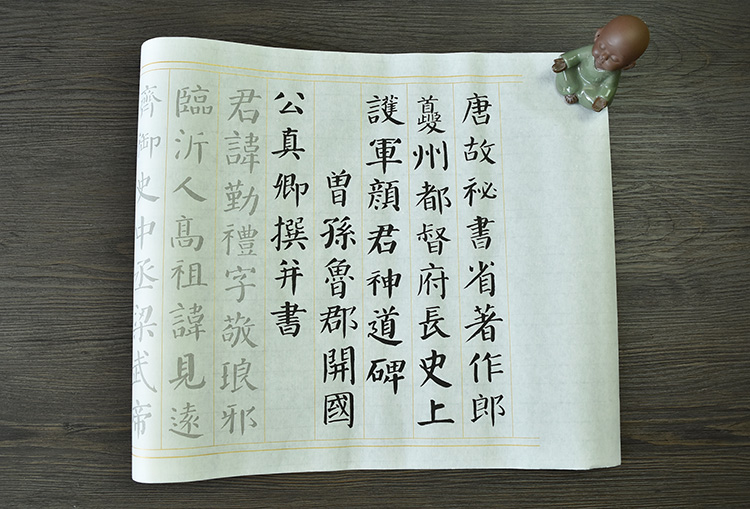 唐故祕書省著作郎
夔州都督府長史上
護軍顏君神道碑
曾孫魯郡開國
公真卿撰并書
君諱勤禮字敬琅邪
臨沂人高祖諱見遠
齊御史中丞梁武帝